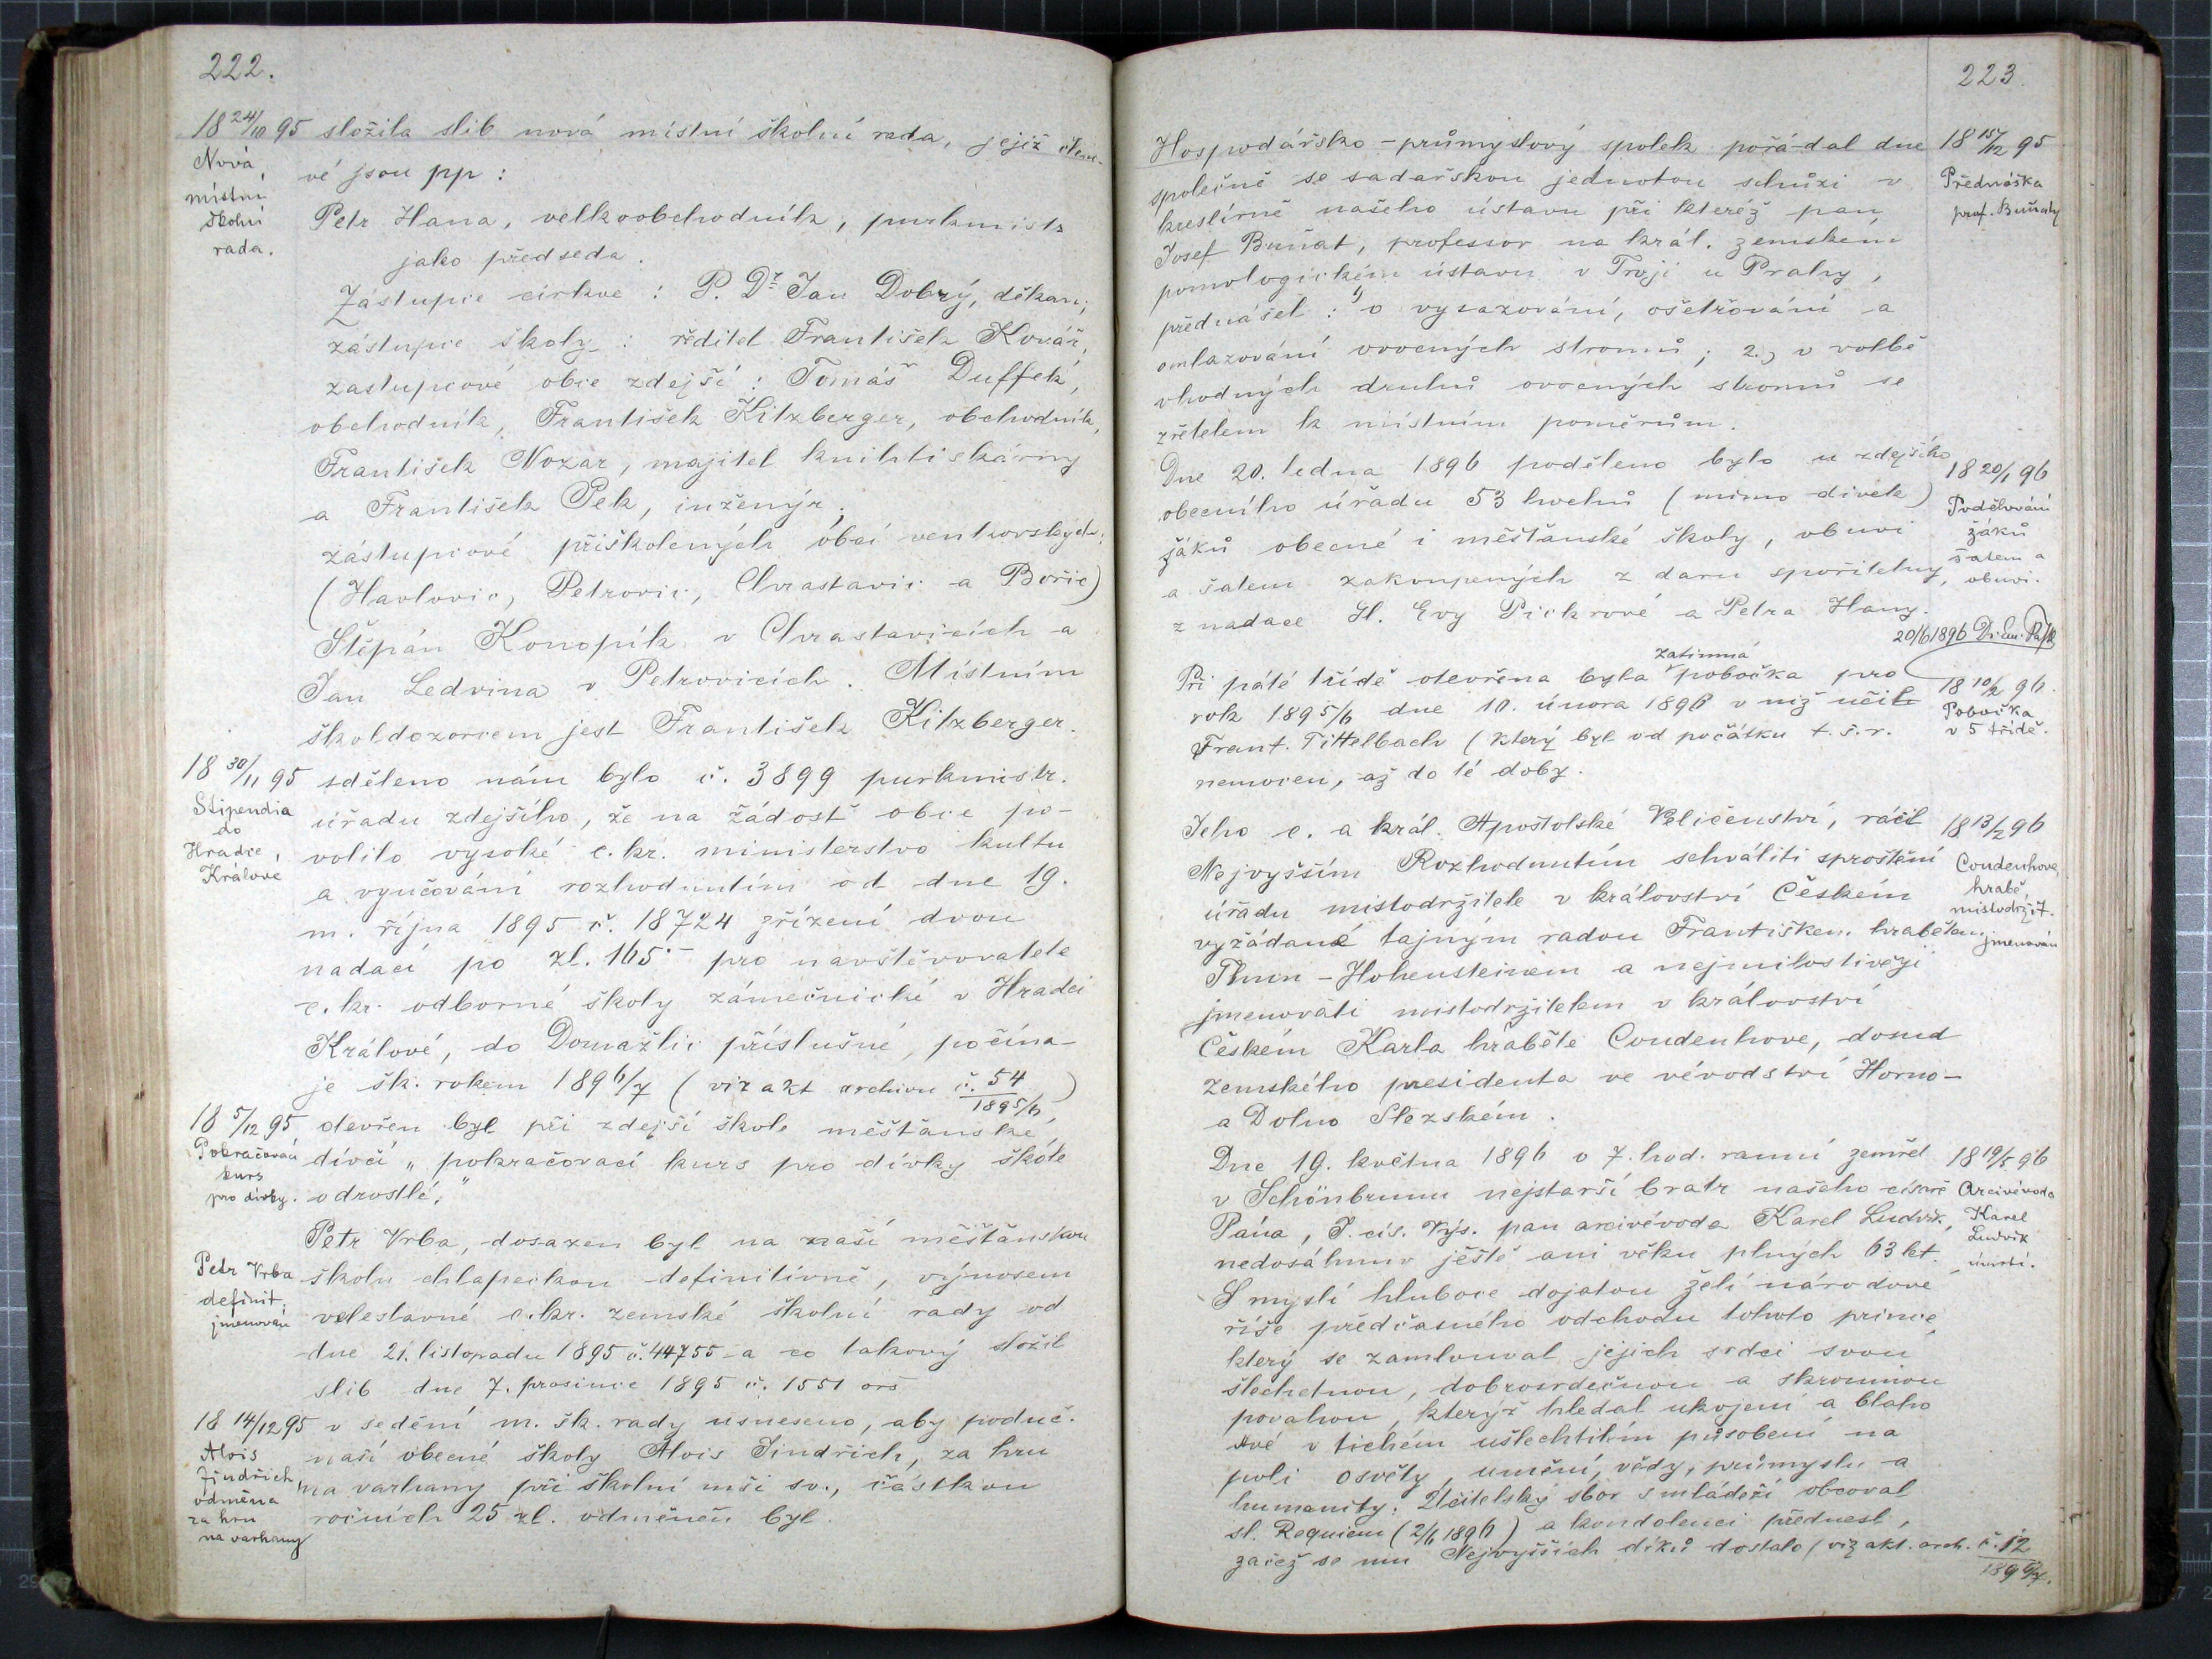 222.
18 24/10 95 složila slib nová místní školní rada, jejíž členo-
Nová
místní
školní
rada.
vé jsou pp:
Petr Hana, velkoobchodník, purkmistr
jako předseda.
Zástupce církve: P. Dr Jan Dobrý, děkan;
zástupce školy: ředitel František Kovář,
zastupcové obce zdejší: Tomáš Duffek,
obchodník, František Kitzberger, obchodník,
František Nozar, majitel knihtiskárny
a František Pek, inženýr;
zástupcové přiškolených obcí venkovských:
(Havlovic, Petrovic, Chrastavic a Bořic)
Štěpán Konopík v Chrastavicích a
Jan Ledvina v Petrovicích. Místním
školdozorcem jest František Kitzberger.
18 30/11 95 sděleno nám bylo č. 3899 purkmistr.
Stipendia
do
Hradce
Králové
úřadu zdejšího, že na žádost obce po-
volilo vysoké c. kr. ministerstvo kultu
a vyučování rozhodnutím od dne 19.
m. října 1895 č. 18724 zřízení dvou
nadací po zl. 165.– pro navštěvovatele
c. kr. odborné školy zámečnické v Hradci
Králové, do Domažlic příslušné, počína-
je šk. rokem 1896/7 (viz akt archivu č. 54/1895/6)
18 5/12 95 otevřen byl při zdejší škole měšťanské
Pokračovací
kurs
pro dívky.
dívčí „pokračovací kurs pro dívky škole
odrostlé."
Petr Vrba, dosazen byl na naší měšťanskou
Petr Vrba
definit.
jmenován
školu chlapeckou definitivně, výnosem
veleslavné c. kr. zemské školní rady od
dne 21. listopadu 1895 č. 44755 a co takový složil
slib dne 7. prosince 1895 č. 1551 orš
18 14/12 95 v sedění m. šk. rady usneseno, aby poduč.
Alois
Jindřich
odměna
za hru
na varhany
naší obecné školy Alois Jindřich, za hru
na varhany při školní mši sv., částkou
ročních 25 zl. odměněn byl.
223
Hospodářsko-průmyslový spolek pořádal dne 18 15/12 95
společně se sadařskou jednotou schůzi v
kreslírně našeho ústavu při kteréž pan
Přednáška
prof. Buňaty
Josef Buňat, professor na král. zemském
pomologickém ústavu v Troji u Prahy,
přednášel: 1) o vysazování, ošetřování a
omlazování ovocných stromů; 2.) o volbě
vhodných druhů ovocných stromů se
zřetelem k místním poměrům.
Dne 20. ledna 1896 poděleno bylo u zdejšího 18 20/1 96
obecního úřadu 53 hochů (mimo dívek)
žáků obecné i měšťanské školy, obuví
a šatem zakoupených z daru spořitelny,
z nadace Sl. Evy Pickrové a Petra Hany.
Podělování
žáků
šatem a
obuví.
20/6 1896
Při páté třídě otevřena byla zatimná pobočka pro 18 10/2 96.
rok 1895/6 dne 10. února 1896 v níž učil
Pobočka
v 5 třídě.
Frant. Tittelbach (který byl od počátku t. š. r.
nemocen, až do té doby.
Jeho c. a král. Apoštolské Veličenství, ráčil 18 13/2 96
Nejvyšším Rozhodnutím schváliti sproštění
úřadu mistodržitele v království Českém
vyžádané tajným radou Františkem hrabětem
Coudenhove
hrabě,
mistodržit.
jmenován
Thun-Hohensteinem a nejmilostivěji
jmenovati mistodržitelem v království
Českém Karla hraběte Coudenhove, dosud
zemského presidenta ve vévodství Horno-
a Dolno Slezském.
Dne 19. května 1896 o 7. hod. ranní zemřel 18 19/5 96
v Schönbrunnu nejstarší bratr našeho císaře
Pána, J. cís. Výs. pan arcivévoda Karel Ludvík,
nedosáhnuv ještě ani věku plných 63 let.
Arcivévoda
Karel
Ludvík
úmrtí.
S myslí hluboce dojatou želí národové
říše předčasného odchodu tohoto prince,
který se zamlouval jejich srdci svou
šlechetnou, dobrosrdečnou a skromnou
povahou, kterýž hledal ukojení a blaho
své v tichém ušlechtilém působení na
poli osvěty, umění, vědy, průmyslu a
humanity. Učitelský sbor s mládeží obcoval
sl. Requiem (2/6 1896) a kondolenci přednesl,
začež se mu Nejvyšších díků dostalo (viz akt. arch. č. 12/1896/7.